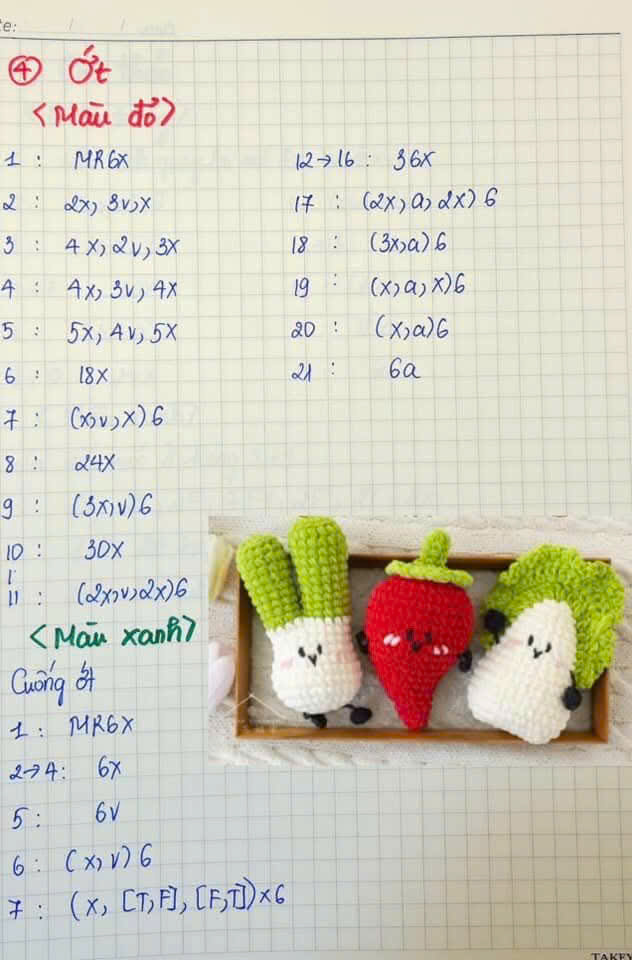 te: / /
④ Ớt
<Màu đỏ>
1 : MR6X
2 : 2x, 3v, x
3 : 4x, 2v, 3x
4 : 4x, 3v, 4x
5 : 5x, 4v, 5x
6 : 18x
7 : (x, v, x) 6
8 : 24x
9 : (3x, v) 6
10 : 30x
11 : (2x, v, 2x) 6
12 → 16 : 36x
17 : (2x, a, 2x) 6
18 : (3x, a) 6
19 : (x, a, x) 6
20 : (x, a) 6
21 : 6a
<Màu xanh>
Cuống ớt
1 : MR6X
2 → 4 : 6x
5 : 6v
6 : (x, v) 6
7 : (x, [T, F], [F, T]) x 6
TAKEY